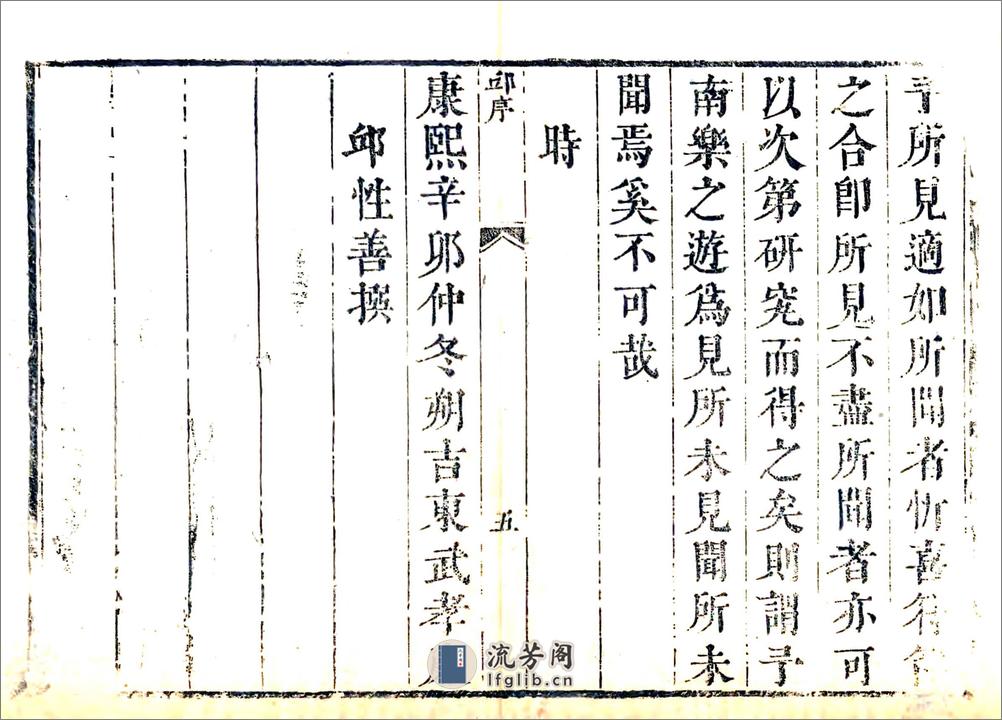 所見適如所聞者忻喜符
之合卽所見不盡所聞者亦可
以次第研究而得之矣則謂予
南樂之遊爲見所未見聞所未
聞焉奚不可哉
時
邱序
五
康熙辛卯仲冬朔吉東武孝
邱性善撰
流芳阁
lfglib.cn